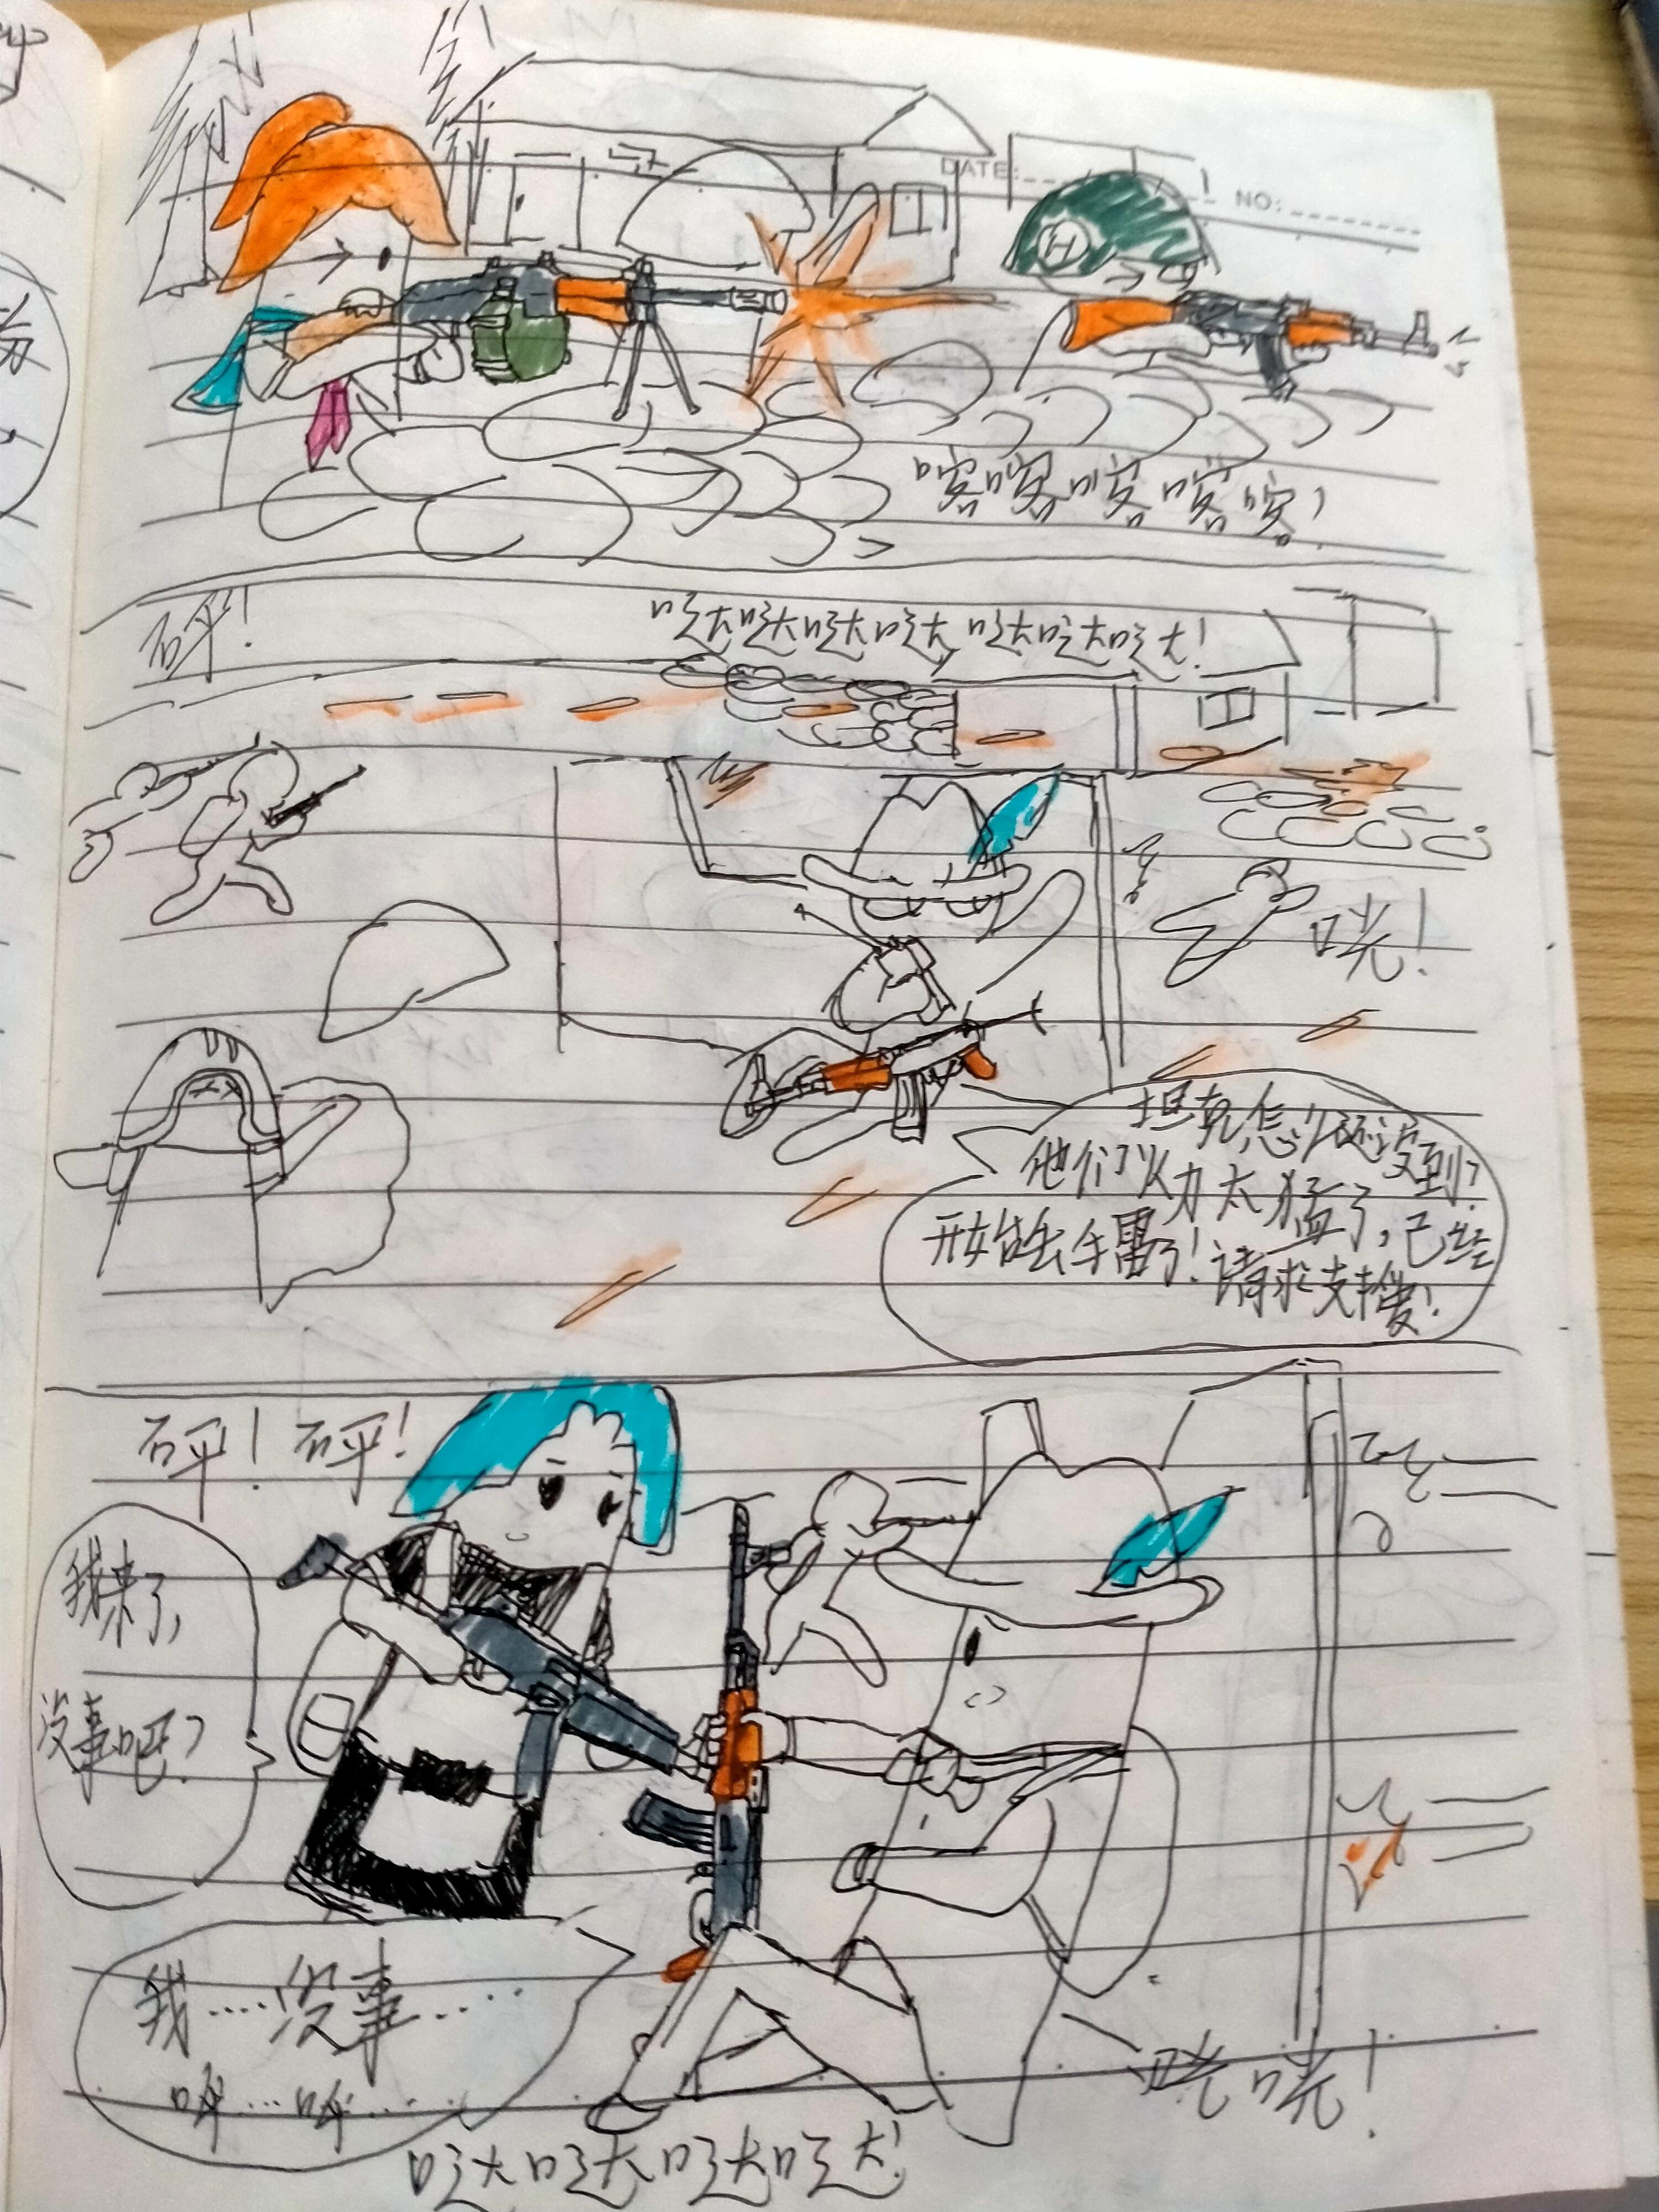 DATE:
NO:
嗒嗒嗒嗒嗒!
砰!
哒哒哒哒哒哒哒!
咣!
坦克怎么还没到?
他们火力太猛了,已经
开始丢手雷了!请求支援!
砰!砰!
我来了,
没事吧?
我……没事……
呼…呼…
咣咣!
哒哒哒哒!